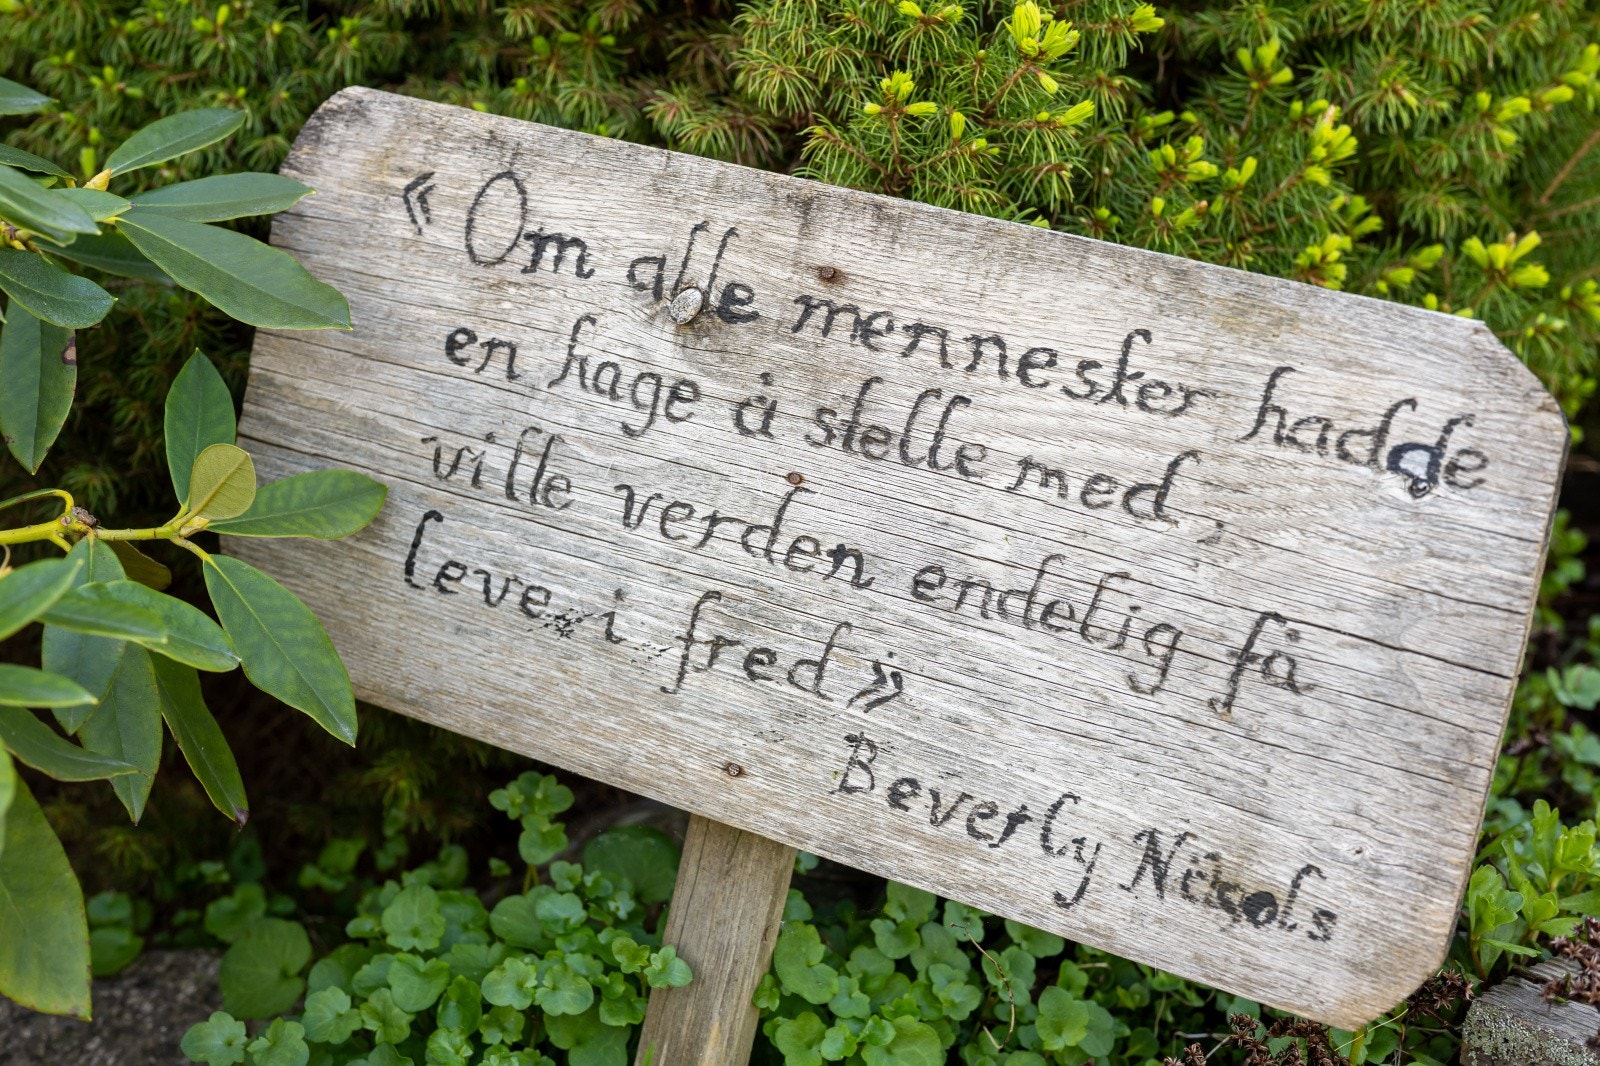 «Om alle mennesker hadde
en hage å stelle med,
ville verden endelig få
leve i fred»
Beverly Nicols